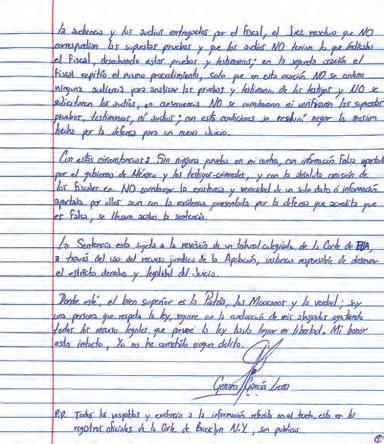 la audiencia y los audios entregados por el fiscal, el Juez resolvio que NO
correspondian las supuestas pruebas y que los audios NO tenian lo que indicaba
el Fiscal, desechando estas pruebas y testimonios; en la segunda ocasión el
Fiscal repitió el mismo procedimiento, solo que en esta ocasión NO se ordeno
ninguna audiencia para analizar las pruebas y testimonio de los testigos y NO se
solicitaron los audios, en consecuencia NO se corroboraron ni verificaron las supuestas
pruebas, testimonios, ni audios; con estas condiciones se resolvió negar la
hecha por la defensa para un nuevo Juicio.
Con estas circunstancias: Sin ninguna prueba en mi contra, con información Falsa aportada
por el gobierno de México y los testigos-criminales, y con la absoluta omisión de
los Fiscales en NO corroborar la existencia y veracidad de un solo dato o información
aportada por ellos aun con la existencia presentada por la defensa que acredita que
es Falsa, se llevara acabo la sentencia.
La Sentencia esta sujeta a la revisión de un tribunal colegiado de la Corte de EUA,
a través del uso del recurso jurídico de la Apelación, instancia responsable de observar
el estricto derecho y legalidad del Juicio.
Donde esté, el bien superior es la Patria, los Mexicanos y la verdad; soy
una persona que respeta la ley, seguire con la conducción de mis abogados agotando
todos los recursos legales que provee la ley hasta lograr mi libertad. Mi honor
esta intacto, Yo no he cometido ningun delito.
Genaro García Luna
P.D. Todos los respaldos y evidencia a la información referida en el texto, esta en los
registros oficiales de la Corte de Brooklyn N.Y., son publicos.